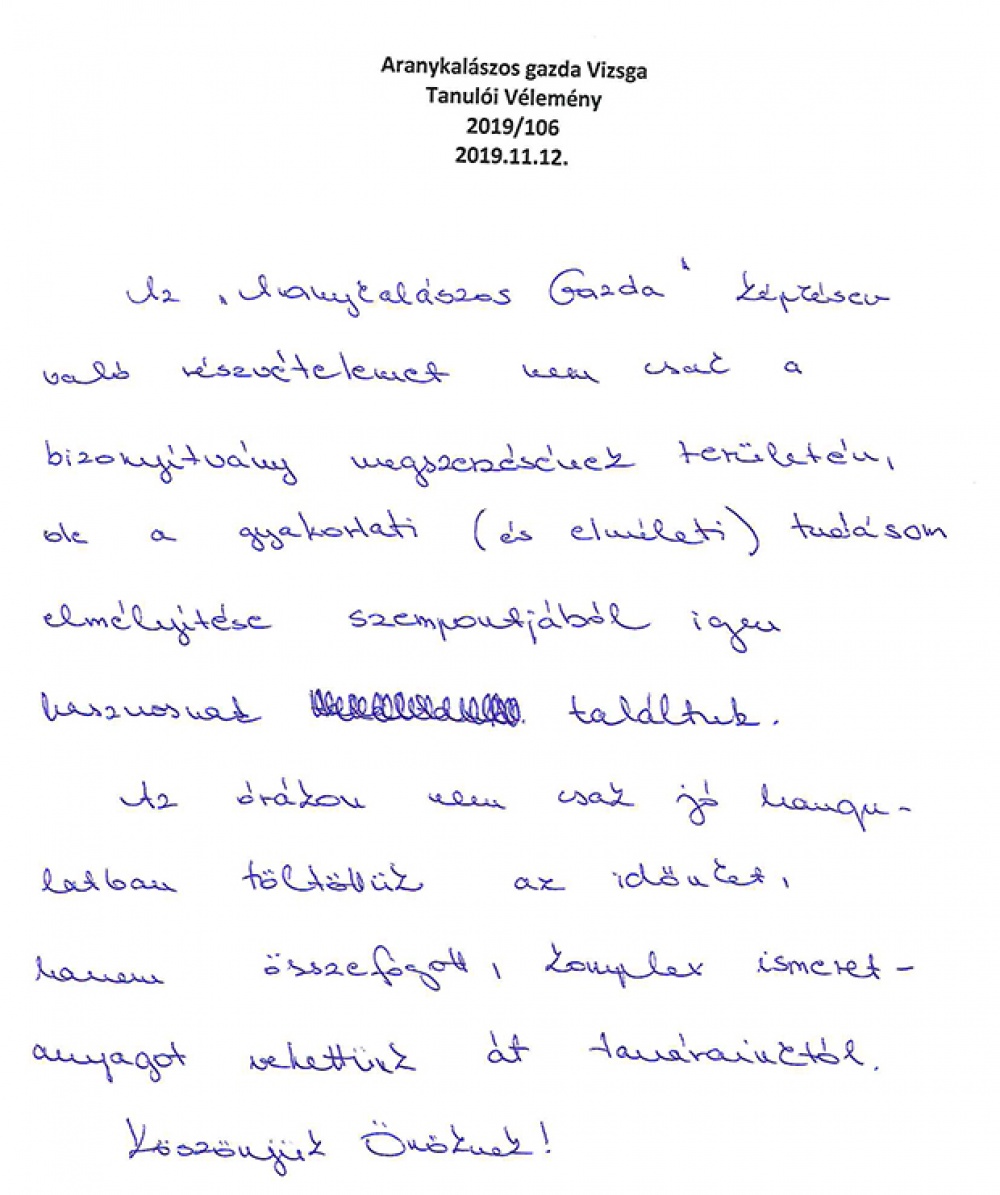 Aranykalászos gazda Vizsga
Tanulói Vélemény
2019/106
2019.11.12.
Az „Aranykalászos Gazda" képzésen
való részvételemet nem csak a
bizonyítvány megszerzésének területén,
de a gyakorlati (és elméleti) tudásom
elmélyítése szempontjából igen
hasznosnak találtuk.
Az órákon nem csak jó hangu-
latban töltöttük az időnket,
hanem összefogott, komplex ismeret-
anyagot vehettünk át tanárainktól.
Köszönjük Önöknek!